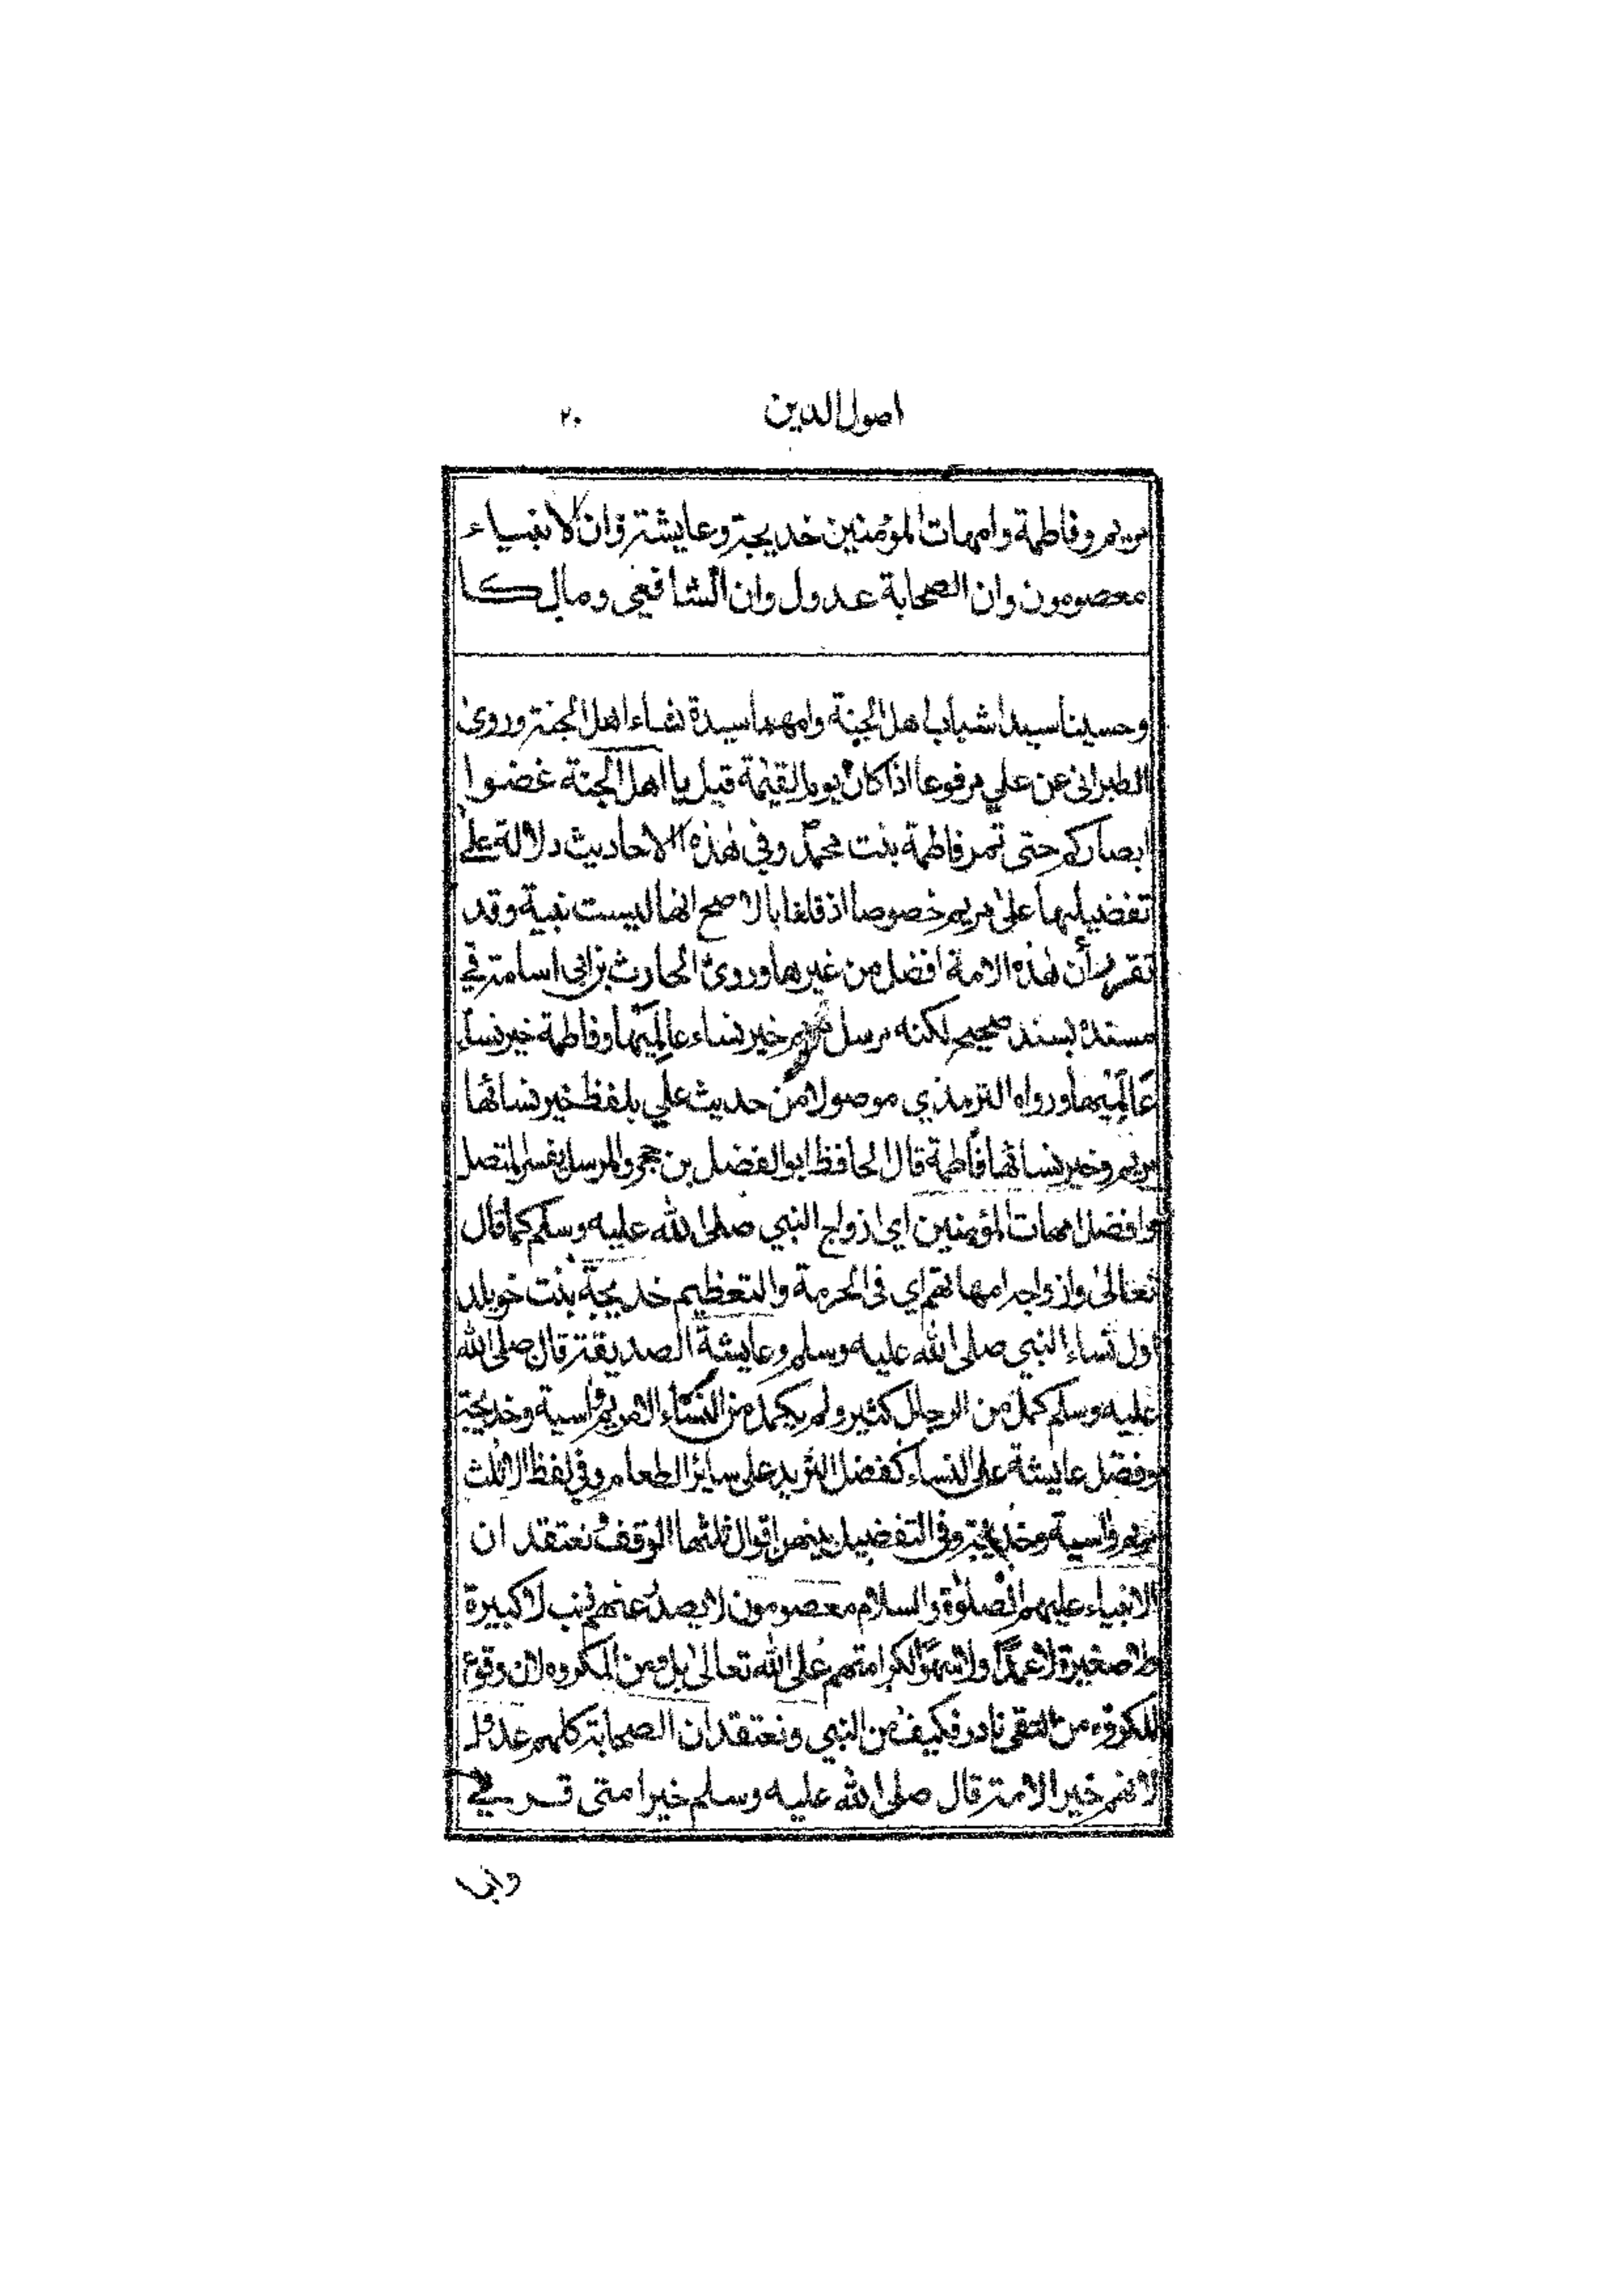 اصول الدين ٢٠
مريم وفاطمة وامهات المؤمنين خديجة وعايشة وان الانبياء
معصومون وان الصحابة عدول وان الشافعي ومالكا
وحسينا سيدا شباب اهل الجنة وامهما سيدة نساء اهل الجنة وروى
الطبراني عن علي مرفوعا اذا كان يوم القيٰمة قيل يا اهل الجنة غضوا
ابصاركم حتى تمر فاطمة بنت محمد وفي هٰذه الاحاديث دلالة على
تفضيلها على مريم خصوصا اذ قلنا بالاصح انها ليست نبية وقد
تقرر أن هٰذه الامة افضل من غيرها وروى الحارث بن ابي اسامة في
مسنده بسند صحيح لكنه مرسل مريم خير نساء عالمها وفاطمة خير نساء
عالمها ورواه الترمذي موصولا من حديث علي بلفظ خير نسائها
مريم وخير نسائها فاطمة قال الحافظ ابو الفضل بن حجر والمرسل يفسر المتصل
وافضل امهات المؤمنين اي ازواج النبي صلى الله عليه وسلم كما قال
تعالى وازواجه امهاتهم اي في الحرمة والتعظيم خديجة بنت خويلد
اول نساء النبي صلى الله عليه وسلم وعايشة الصديقة قال صلى الله
عليه وسلم كمل من الرجال كثير ولم يكمل من النساء الا مريم واسية وخديجة
وفضل عايشة على النساء كفضل الثريد على ساير الطعام وفي لفظ الا ثلث
مريم واسية وخديجة وفي التفضيل بينهن اقوال ثلثها الوقف ونعتقد ان
الانبياء عليهم الصلوٰة والسلام معصومون لا يصدر عنهم ذنب لا كبيرة
ولا صغيرة لا عمدا ولا سهوا لكرامتهم على الله تعالى بل ومن المكروه لان وقوع
المكروه من التقي نادر فكيف من النبي ونعتقد ان الصحابة كلهم عدول
لانهم خير الامة قال صلى الله عليه وسلم خير امتي قرني